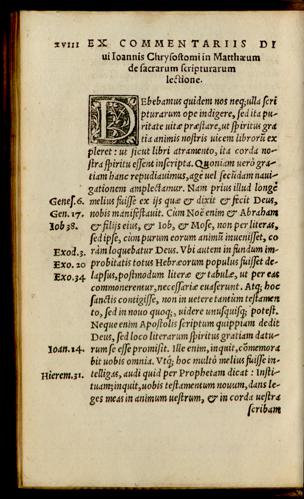 xviii EX COMMENTARIIS DI
ui Ioannis Chrysostomi in Matthæum
de sacrarum scripturarum
lectione.
DEbebamus quidem nos neq; ulla scri
pturarum ope indigere, sed ita pu-
ritate uitæ præstare, ut spiritus gra
tia animis nostris uicem librorũ ex
pleret: ut sicut libri atramento, ita corda no-
stra spiritu essent inscripta. Quoniam uero gra
tiam hanc repudiauimus, age uel secũdam naui-
gationem amplectamur. Nam prius illud longè
Genes.6. melius fuisse ex ijs quæ & dixit & fecit Deus,
Gen.17. nobis manifestauit. Cùm Noë enim & Abraham
Iob 38. & filijs eius, & Iob, & Mose, non per literas,
sed ipse, cùm purum eorum animũ inuenisset, co
Exod.3. ràm loquebatur Deus. Vbi autem in fundum im-
Exo.20 probitatis totus Hebræorum populus fuisset de-
Exo.34 lapsus, postmodum literæ & tabulæ, ut per eas
commoneremur, necessariæ euaserunt. Atq; hoc
sanctis contigisse, non in uetere tantùm testamen
to, sed in nouo quoq;, uidere unusquisq; potest.
Neque enim Apostolis scriptum quippiam dedit
Deus, sed loco literarum spiritus gratiam datu-
Ioan.14. rum se esse promisit. Ille enim, inquit, cõmemora
bit uobis omnia. Vtq; hoc multò melius fuisse in-
Hierem.31. telligas, audi quid per Prophetam dicat: Insti-
tuam, inquit, uobis testamentum nouum, dans le-
ges meas in animum uestrum, & in corda uestra
scribam